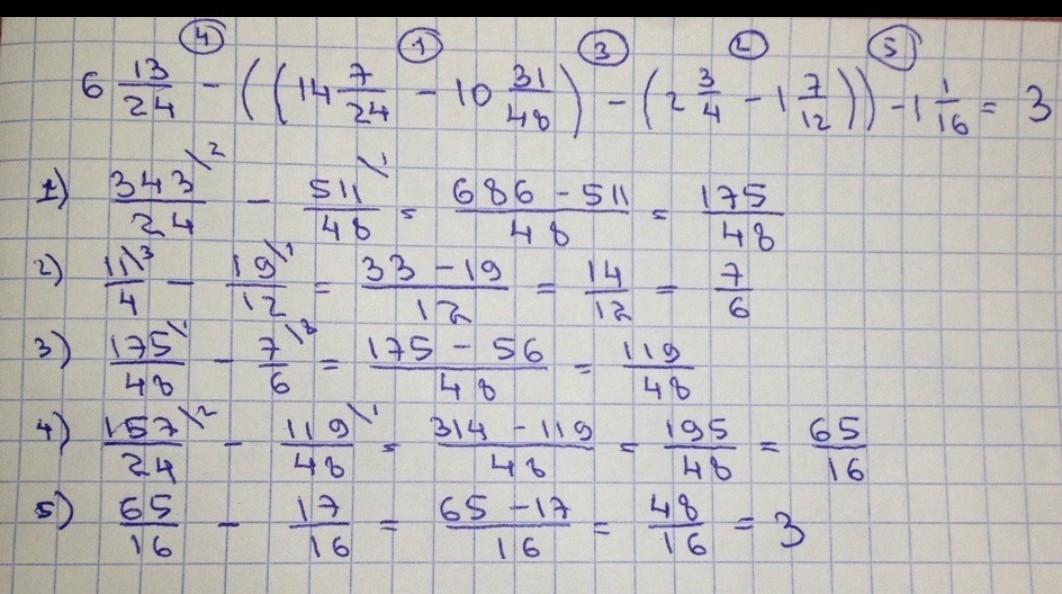 ④ ① ③ ② ⑤
6 13/24 - ((14 7/24 - 10 31/48) - (2 3/4 - 1 7/12)) - 1 1/16 = 3
1) 343\2/24 - 511\1/48 = 686 - 511/48 = 175/48
2) 11\3/4 - 19\1/12 = 33 - 19/12 = 14/12 = 7/6
3) 175\1/48 - 7\8/6 = 175 - 56/48 = 119/48
4) 157\2/24 - 119\1/48 = 314 - 119/48 = 195/48 = 65/16
5) 65/16 - 17/16 = 65 - 17/16 = 48/16 = 3